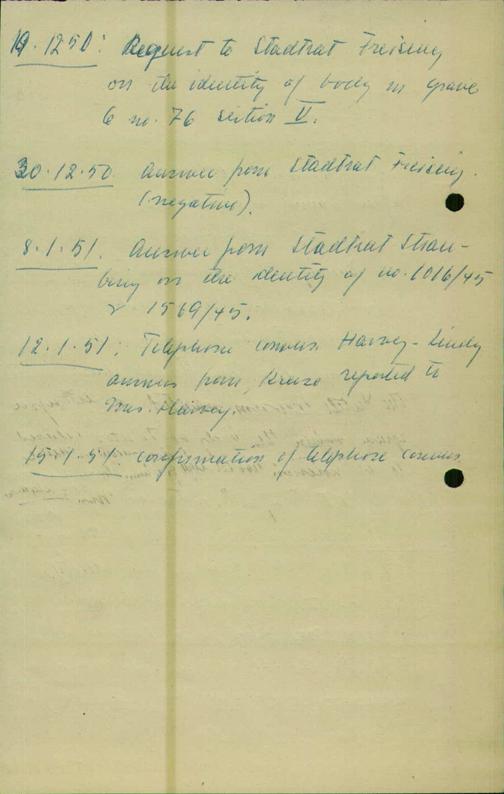 19.12.50: Request to Stadtrat Freising
on the identity of body in grave
6 no. 76 section V.
30.12.50 Answer from Stadtrat Freising.
(negative).
8.1.51. Answer from Stadtrat Strau-
bing on the identity of no. 1016/45
& 1569/45.
12.1.51: Telephone convers. Harvey-
answer from, reported to
Mrs. Harvey.
15.1.51 confirmation of telephone convers.